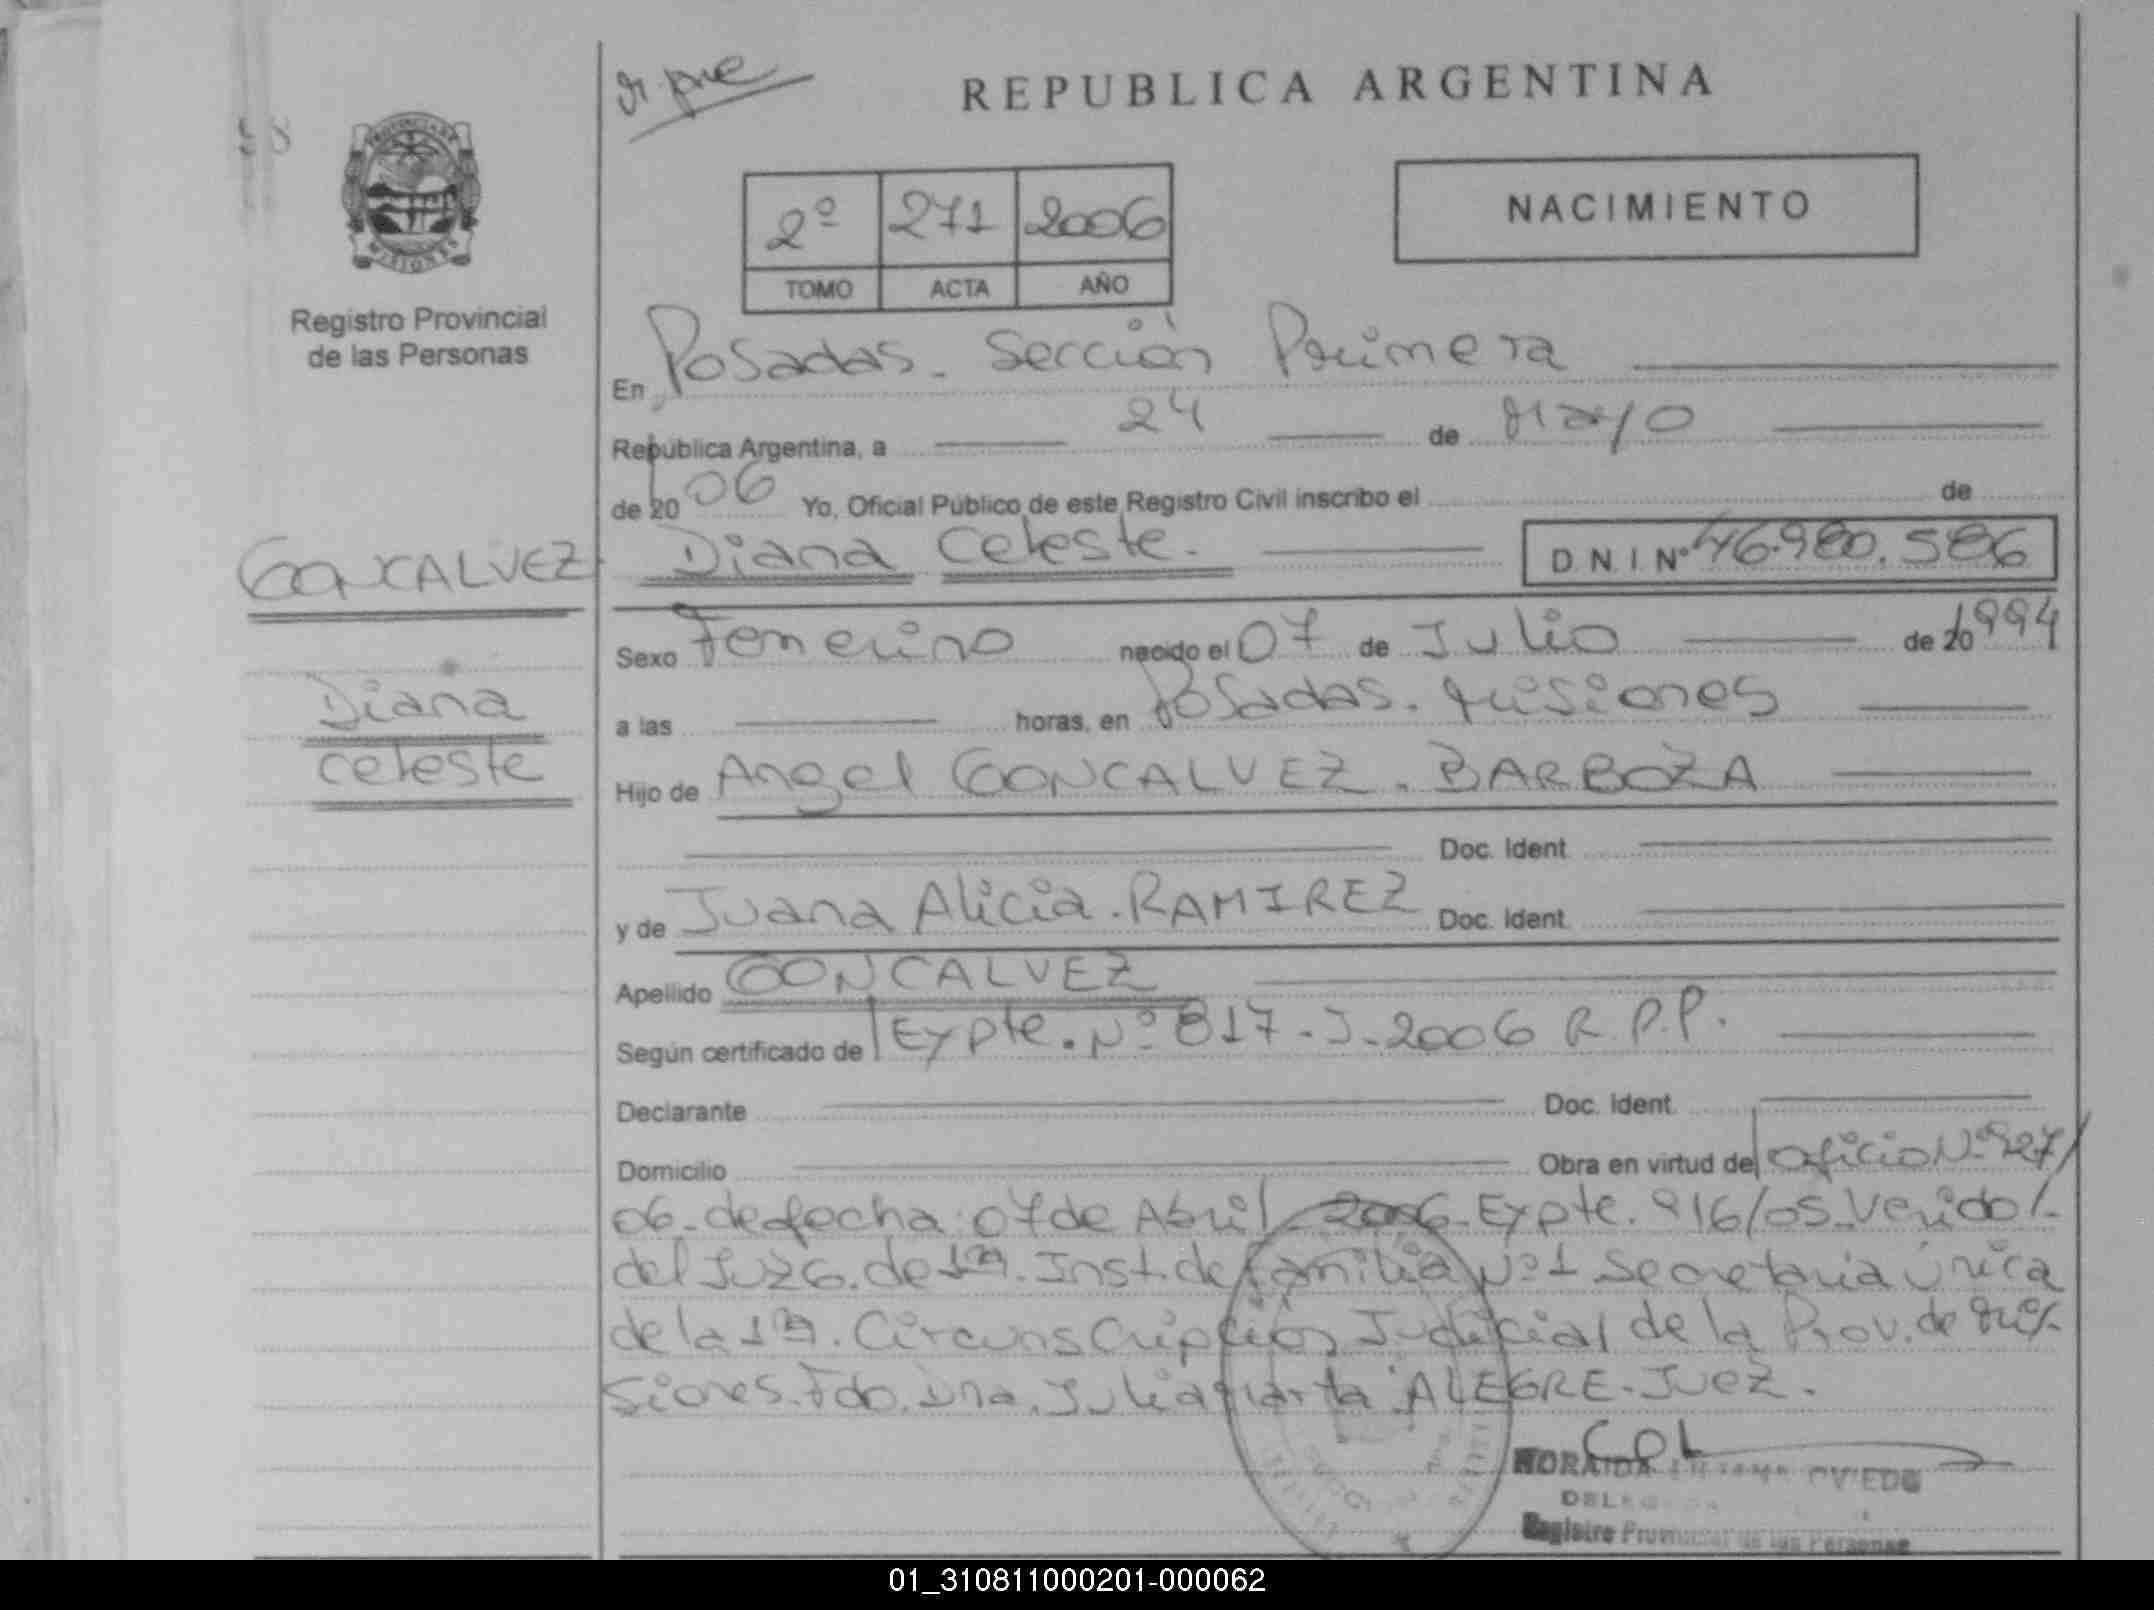 REPUBLICA ARGENTINA
PROVINCIA DE
MISIONES
Registro Provincial
de las Personas
2º 271 2006
TOMO ACTA AÑO
NACIMIENTO
En Posadas. Sección Primera
República Argentina, a 24 de Mayo
de 20 06 Yo, Oficial Público de este Registro Civil inscribo el de
GONCALVEZ Diana Celeste. D.N.I. Nº 46.980.586
Sexo Femenino nacido el 07 de Julio de 1994
Diana
Celeste
a las horas, en Posadas. Misiones
Hijo de Angel GONCALVEZ. BARBOZA
Doc. Ident.
y de Juana Alicia. RAMIREZ Doc. Ident.
Apellido GONCALVEZ
Según certificado de Expte. Nº 817-J-2006 R.P.P.
Declarante Doc. Ident.
Domicilio Obra en virtud de Oficio Nº 927/
06. de fecha: 07 de Abril 2006. Expte. 916/05. Venido/-
del Juzg. de 1ra. Inst. de familia Nº 1 Secretaria Única
de la 1ra. Circunscripción Judicial de la Prov. de Mi/-
siones. Fdo. Dra. Julia Marta ALEGRE. Juez.
OVIEDO
Registro Provincial de las Personas
01_310811000201-000062